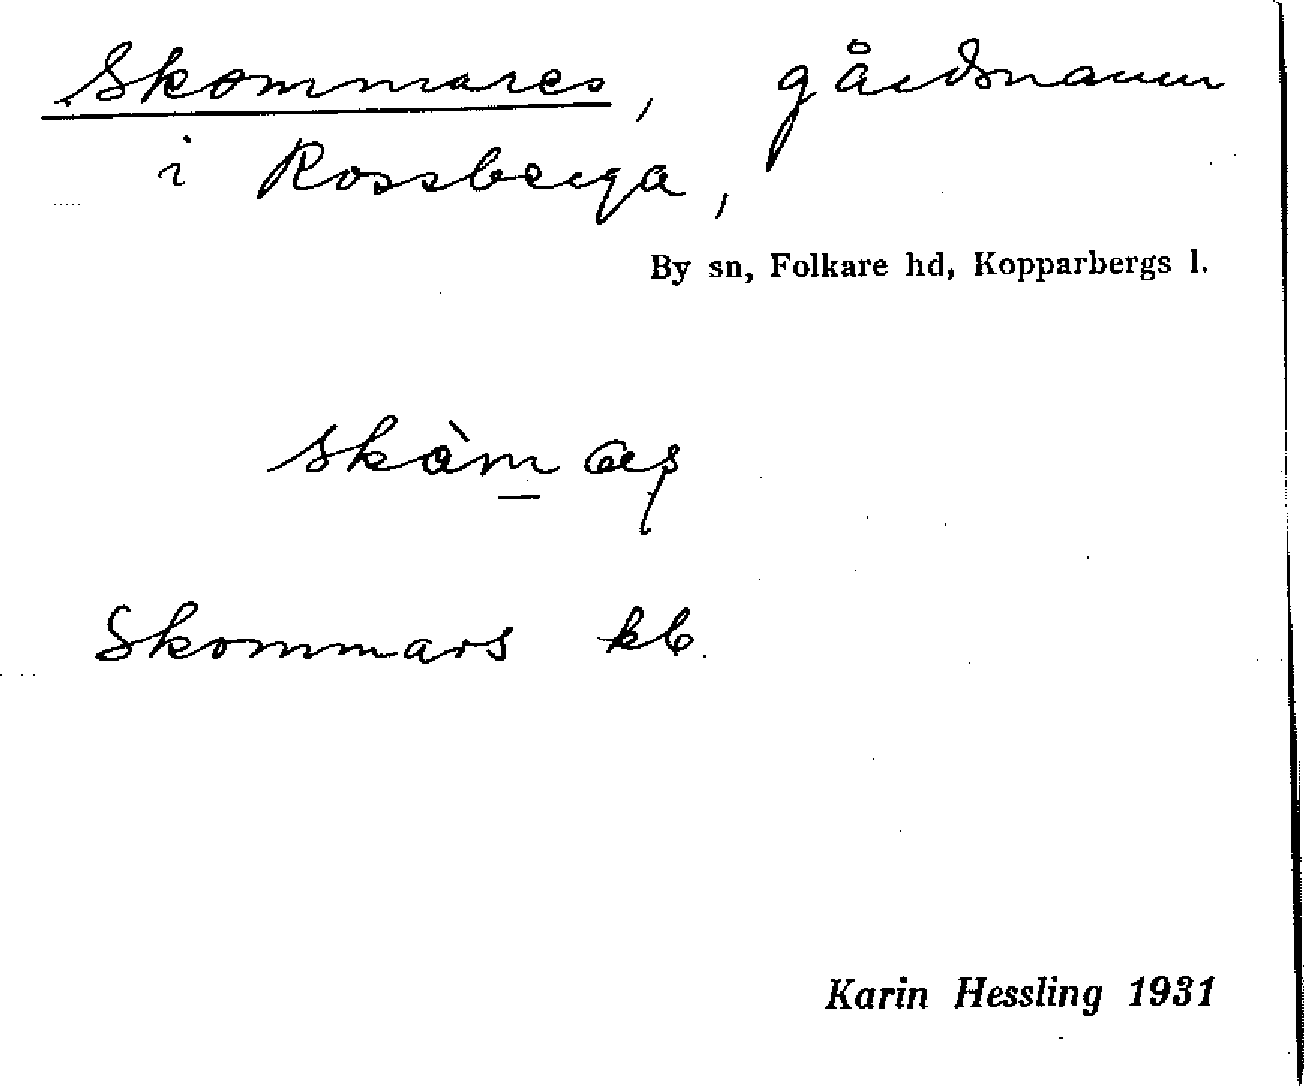 Skommares, gårdsnamn
i Rossberga,
By sn, Folkare hd, Kopparbergs l.
Skommars kb.
Karin Hessling 1931